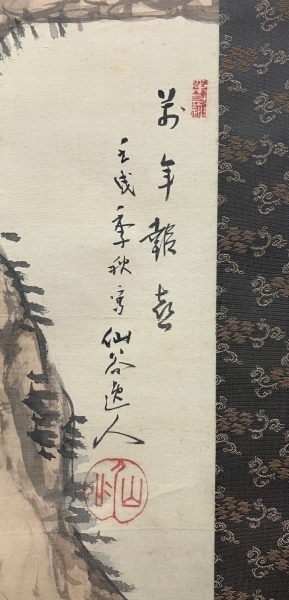 萬年報喜
壬戌季秋寫
仙谷逸人